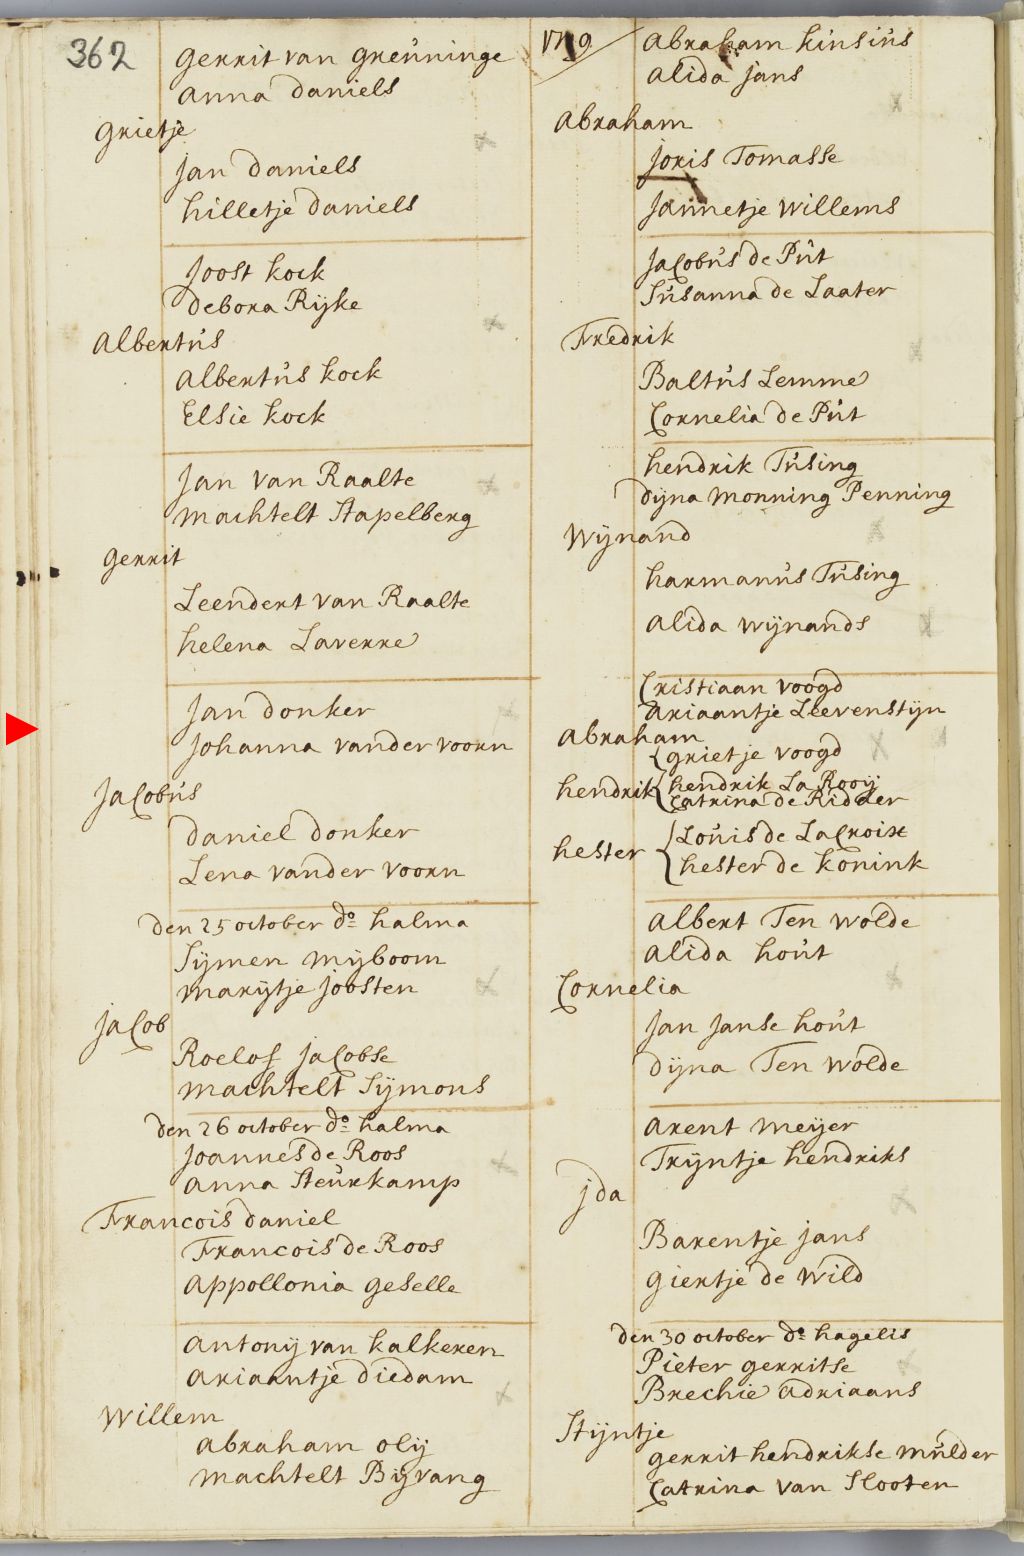 362
Gerrit van Greuninge
Anna Daniels
Grietje
Jan Daniels
hilletje Daniels
Joost kock
Debora Rijke
Albertus
Albertus kock
Elsie kock
Jan van Raalte
Machtelt Stapelberg
Gerrit
Leendert van Raalte
helena Laverre
Jan Donker
Johanna vander voorn
Jacobus
Daniel Donker
Lena vander voorn
Den 25 october do halma
Sijmen Mijboom
Marijtje Joosten
Jacob
Roelof Jacobse
Machtelt Sijmons
Den 26 october do halma
Joannes de Roos
Anna Steurkamp
Francois Daniel
Francois de Roos
Appollonia Geselle
Antonij van kalkeren
Ariaantje Diedam
Willem
Abraham olij
Machtelt Bijvang
1719
Abraham kinsius
Alida Jans
Abraham
Joris Tomasse
Jannetje Willems
Jacobus de Put
Susanna de Laater
Fredrik
Baltus Lemme
Cornelia de Put
hendrik Tusing
Dijna Monning Penning
Wijnand
harmanus Tusing
Alida Wijnands
Cristiaan voogd
Ariaantje Leevenstijn
Abraham
Grietje voogd
hendrik hendrik La Rooij
Catrina de Ridder
hester Louis de LaCroix
hester de konink
Albert Ten Wolde
Alida hout
Cornelia
Jan Janse hout
Dijna Ten Wolde
Arent Meijer
Trijntje hendriks
Jda
Barentje Jans
Giertje de Wild
Den 30 october do hagelis
Pieter Gerritse
Brechie Adriaans
Stijntje
Gerrit hendrikse Mulder
Catrina van Slooten